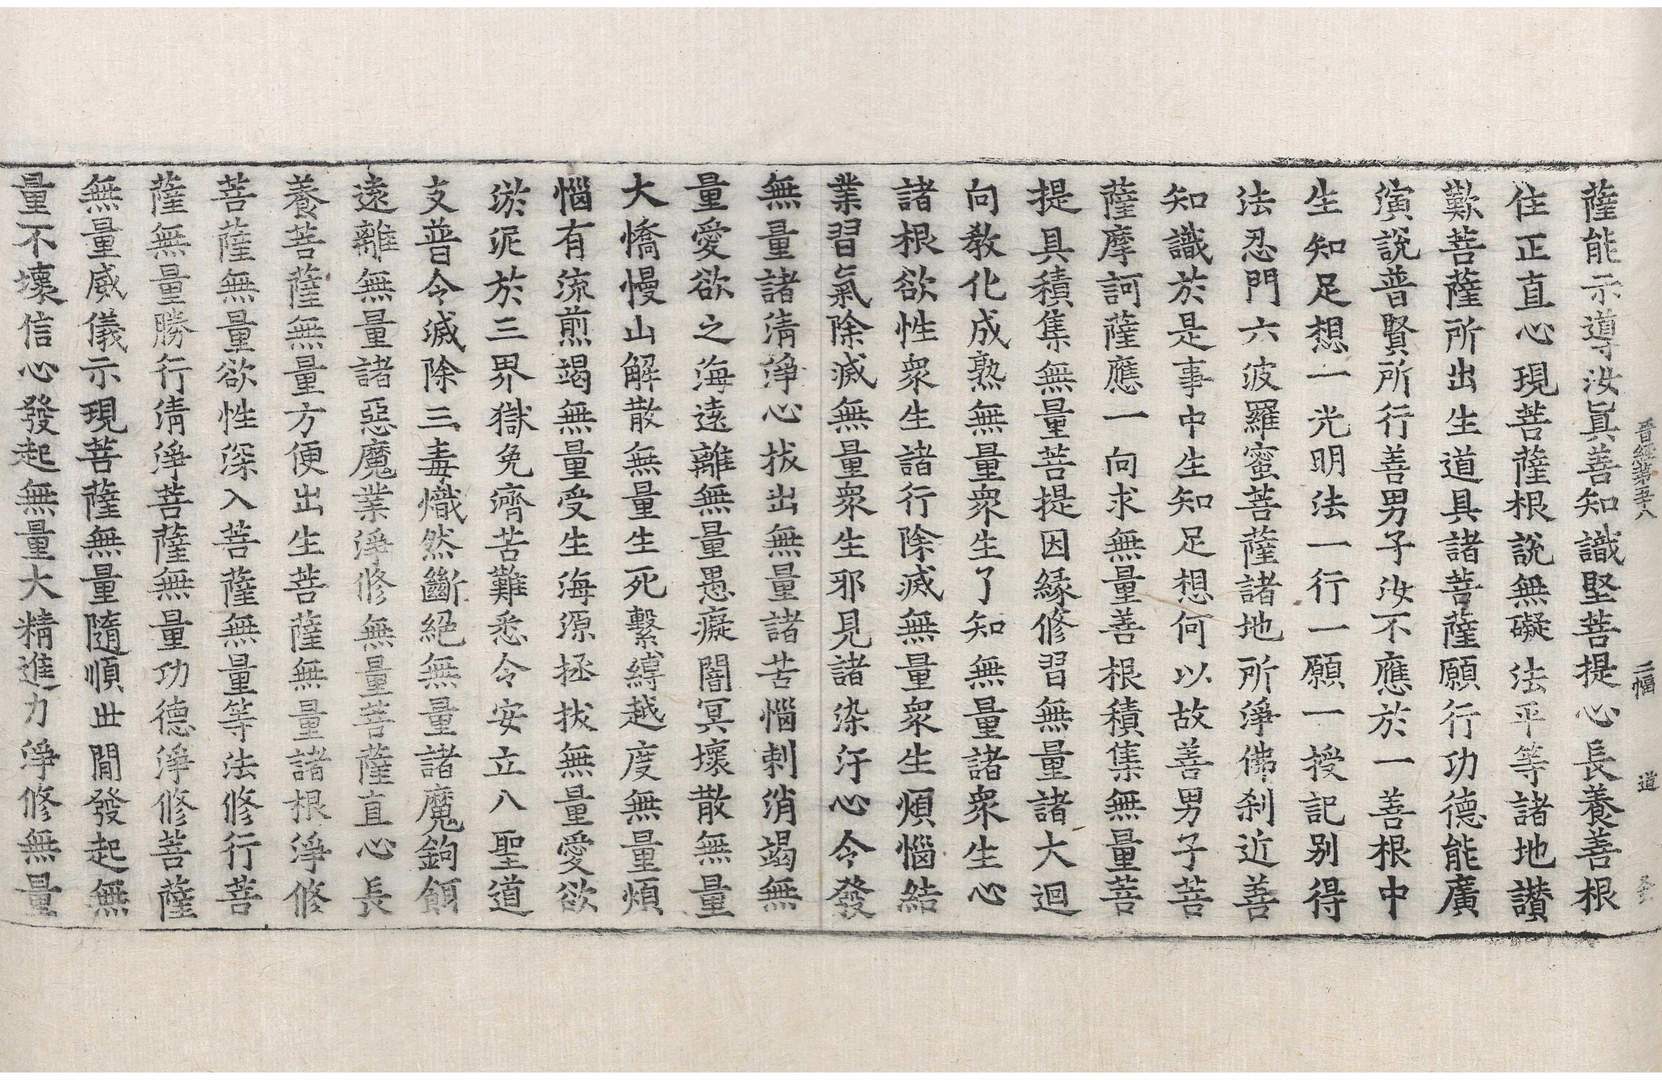 晉經第五十八 二幅 道
薩能示導汝眞善知識堅菩提心長養善根
住正直心現菩薩根說無礙法平等諸地讃
歎菩薩所出生道具諸菩薩願行功德能廣
演說普賢所行善男子汝不應於一善根中
生知足想一光明法一行一願一授記別得
法忍門六波羅蜜菩薩諸地所淨佛刹近善
知識於是事中生知足想何以故善男子菩
薩摩訶薩應一向求無量善根積集無量菩
提具積集無量菩提因緣修習無量諸大迴
向教化成熟無量衆生了知無量諸衆生心
諸根欲性衆生諸行除滅無量衆生煩惱結
業習氣除滅無量衆生邪見諸染汙心令發
無量諸清淨心拔出無量諸苦惱刺消竭無
量愛欲之海遠離無量愚癡闇冥壞散無量
大憍慢山解散無量生死繫縛越度無量煩
惱有流煎竭無量受生海源拯拔無量愛欲
淤泥於三界獄免濟苦難悉令安立八聖道
支普令滅除三毒熾然斷絕無量諸魔鉤餌
遠離無量諸惡魔業淨修無量菩薩直心長
養菩薩無量方便出生菩薩無量諸根淨修
菩薩無量欲性深入菩薩無量等法修行菩
薩無量勝行清淨菩薩無量功德淨修菩薩
無量威儀示現菩薩無量隨順世閒發起無
量不壞信心發起無量大精進力淨修無量